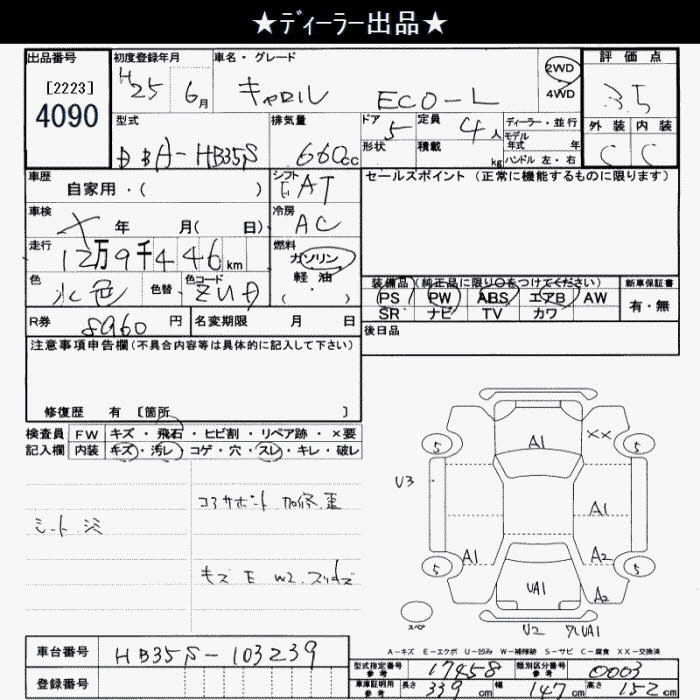 ★ディーラー出品★
出品番号
[2223]
4090
初度登録年月
H25 6月
車名・グレード
キャロル ECO-L
2WD
4WD
評価点
3.5
外装 内装
C C
型式
DBA-HB35S
排気量
660cc
ドア 5
形状
定員 4人
積載 kg
ディーラー・並行
モデル年式 年
ハンドル 左・右
車歴
自家用・( )
シフト
FAT
セールスポイント (正常に機能するものに限ります)
車検
年 月( 日)
冷房
AC
走行
12万9千446km
燃料
ガソリン
軽・油
・( )
色
水色
色替
色コード
ZUA
装備品 (純正品に限り○をつけてください)
PS PW ABS エアB AW
SR ナビ TV カワ
新車保証書
有・無
R券 8960円
名変期限 月 日
後日品
注意事項申告欄(不具合内容等は具体的に記入して下さい)
修復歴 有 [箇所 ]
検査員 FW キズ・飛石・ヒビ割・リペア跡・×要
記入欄 内装 キズ・汚レ・コゲ・穴・スレ・キレ・破レ
コアサポート
シート
キズ E W2
A1
XX
5
5
U3
A1
A1
A2
5
5
UA1
A2
スペア
U2
UA1
A-キズ E-エクボ U-凹み W-補修跡 S-サビ C-腐食 XX-交換済
車台番号 HB35S-103239
登録番号
型式指定番号 参考 17458
類別区分番号 参考 0003
車庫証明用 参考 長さ 339cm 幅 147cm 高さ 152cm